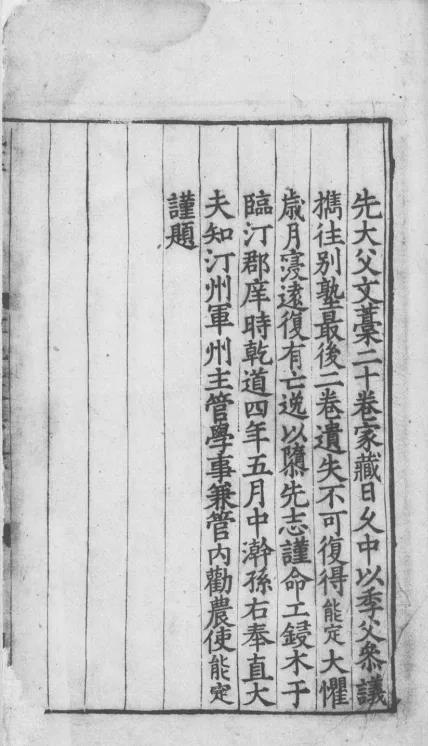 先大父文藁二十卷家藏日乆中以季父叅議
擕往别塾最後二卷遺失不可復得能定大懼
歳月寖逺復有亡逸以隳先志謹命工鋟木于
臨汀郡庠時乾道四年五月中澣孫右奉直大
夫知汀州軍州主管學事兼管内勸農使能定
謹題